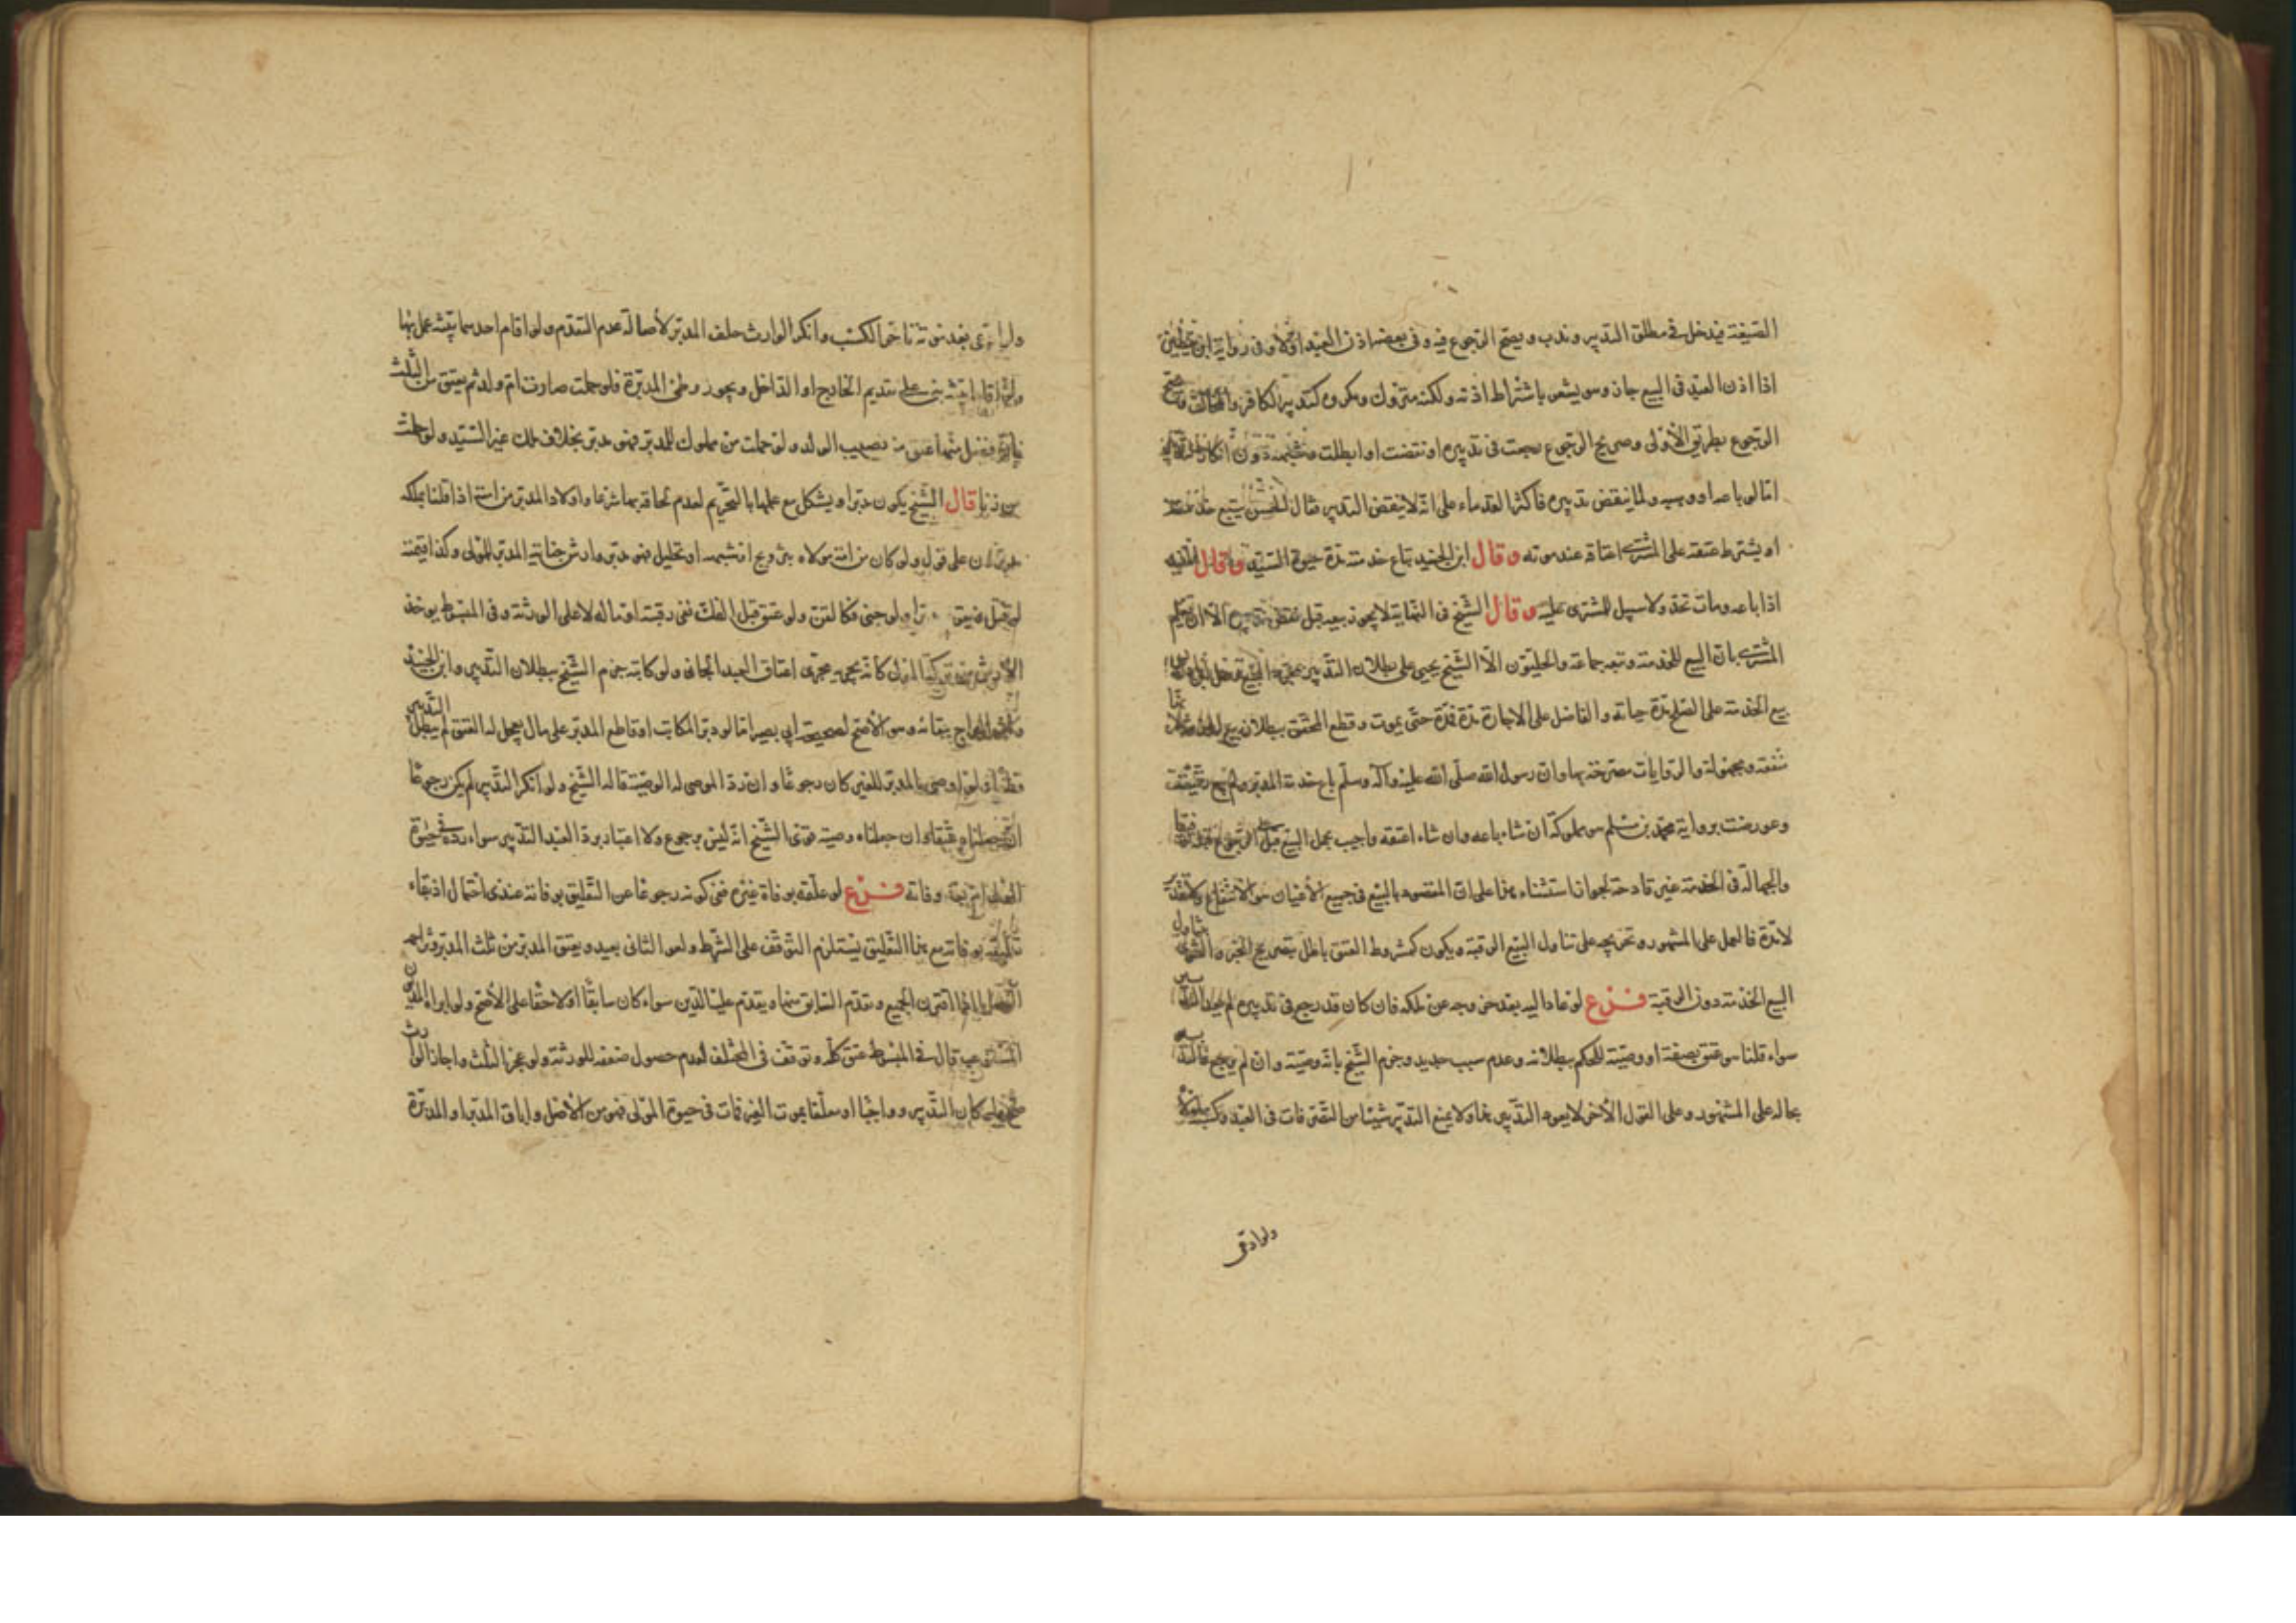 الصيغة فيدخل في مطلق التدبير وندب ويصح الرجوع فيه وفي بعضه اذن العبد اولا وفي رواية ابن يقطين
اذا اذن العبد في البيع جاز وهو يشعر باشتراط اذنه ولكنه متروك ومكروه كتدبير الكافر والمخالف
الرجوع بطريق الأولى وصريح الرجوع رجعت في تدبيره او نقضت او ابطلت وشبهه دون انكار
امّا لو باعه او وهبه ولمّا ينقض تدبيره فأكثر القدماء على انّه لا ينقض التدبير فقال الحسن يبيع خدمته
او يشترط عتقه على المشتري اعتاقه عند موته وقال ابن الجنيد تباع خدمته مدّة حيوة السيّد وقال
اذا باعه ومات تحرّر ولا سبيل للمشتري عليه وقال الشيخ في النهاية لا يجوز بيعه قبل نقض تدبيره الّا ان يعلم
المشتري بانّ البيع للخدمة وتبعه جماعة والحليّون الّا الشيخ يحيى على بطلان التدبير بمجرد البيع
بيع الخدمة على الصلح مدّة حياته والفاضل على الاجارة مدّة فمدّة حتّى يموت وقطع المحقّق ببطلان بيع
منفعة مجهولة والروايات مصرّحة بها وانّ رسول الله صلّى الله عليه وآله وسلّم باع خدمة المدبّر ولم يبع رقبته
وعورضت برواية محمّد بن مسلم هو مملوكه ان شاء باعه وان شاء اعتقه واجيب بحمل البيع على الرجوع
والجهالة في الخدمة غير قادحة لجواز استثناء هذا على انّ المقصود بالبيع في جميع الأعيان هو الانتفاع
لامدّة فالعمل على المشهور وتخريجه على تناول البيع الرقبة ويكون كمشروط العتق باطل بتصريح الخبر
البيع الخدمة دون الرقبة فرع لو عاد اليه بعد خروجه عن ملكه فان كان قد رجع في تدبيره لم يعد
سواء قلنا هو عتق بصفة او وصيّة للحكم ببطلانه وعدم سبب جديد وجزم الشيخ بانّه وصيّة وان لم يرجع
بحاله على المشهور وعلى القول الآخر لا يعود التدبير هنا ولا يمنع التدبير شيئا من التصرّفات في العبد وكسبه
ولو ادّعى
ولو ادعى بعد موته تاخر الكسب وانكر الوارث حلف المدبّر لأصالة عدم التقدّم ولو اقام احدهما بيّنة عمل بها
بنى على تقديم الخارج او الداخل ويجوز وطئ المدبّرة فلو حملت صارت امّ ولد ثم يعتق من الثلث
نصيب الولد ولو حملت من مملوك للمدبّر فهو مدبّر بخلاف ملك غير السيّد ولو حملت
من زنا قال الشيخ يكون مدبّرا ويشكل مع علمها بالتحريم لعدم لحاقه بهما شرعا واولاد المدبّر من امته اذا قلنا بملكه
مدبّرون على قول ولو كان من امة مولاه بتزويج او شبهة او تحليل فهو مدبّر وارش جناية المدبّر للمولى وكذا قيمته
لو قتل ولو جنى فكالقنّ ولو عتق قبل الفكّ ففي رقبته او ماله لا على الورثة وفي المبسوط يؤخذ
الارش من تركة المولى كانّه يجريه مجرى اعتاق العبد الجاني ولو كاتبه جزم الشيخ ببطلان التدبير وابن الجنيد
وابن البرّاج ببقائه وهو الأصح لصحيحة أبي بصير امّا لو دبّر المكاتب او قاطع المدبّر على مال يعجل له العتق لم يبطل التدبير
ولو اوصى بالمدبّر للغير كان رجوعا وان ردّ الموصى له الوصيّة قاله الشيخ ولو انكر التدبير لم يكن رجوعا
ان جعلناه عتقا وان جعلناه وصية قوّى الشيخ انّه ليس برجوع ولا اعتبار بردّ العبد التدبير سواء ردّه في حيوة
وفاته فرع لو علّقه بوفاة غيره ففي كونه رجوعا عن التعليق بوفاته عندي احتمال اذ بقاء
تعليقه بوفاته مع هذا التعليق يستلزم التوقّف على الشرط ولغو الثاني بعيد ويعتق المدبّر من ثلث المدبّر
الجميع وتقدّم السابق منها ويقدّم عليه الدين سواء كان سابقا او لاحقا على الأصح ولو ابرأ
قال في المبسوط عتق كلّه وتوقّف في المختلف لعدم حصول ضعفه للورثة ولو عجز الثلث واجاز الوارث
كان التدبير واجبا او معلّقا بموت الغير فمات في حيوة المولى فهو من الأصل واباق المدبّر او المدبّرة